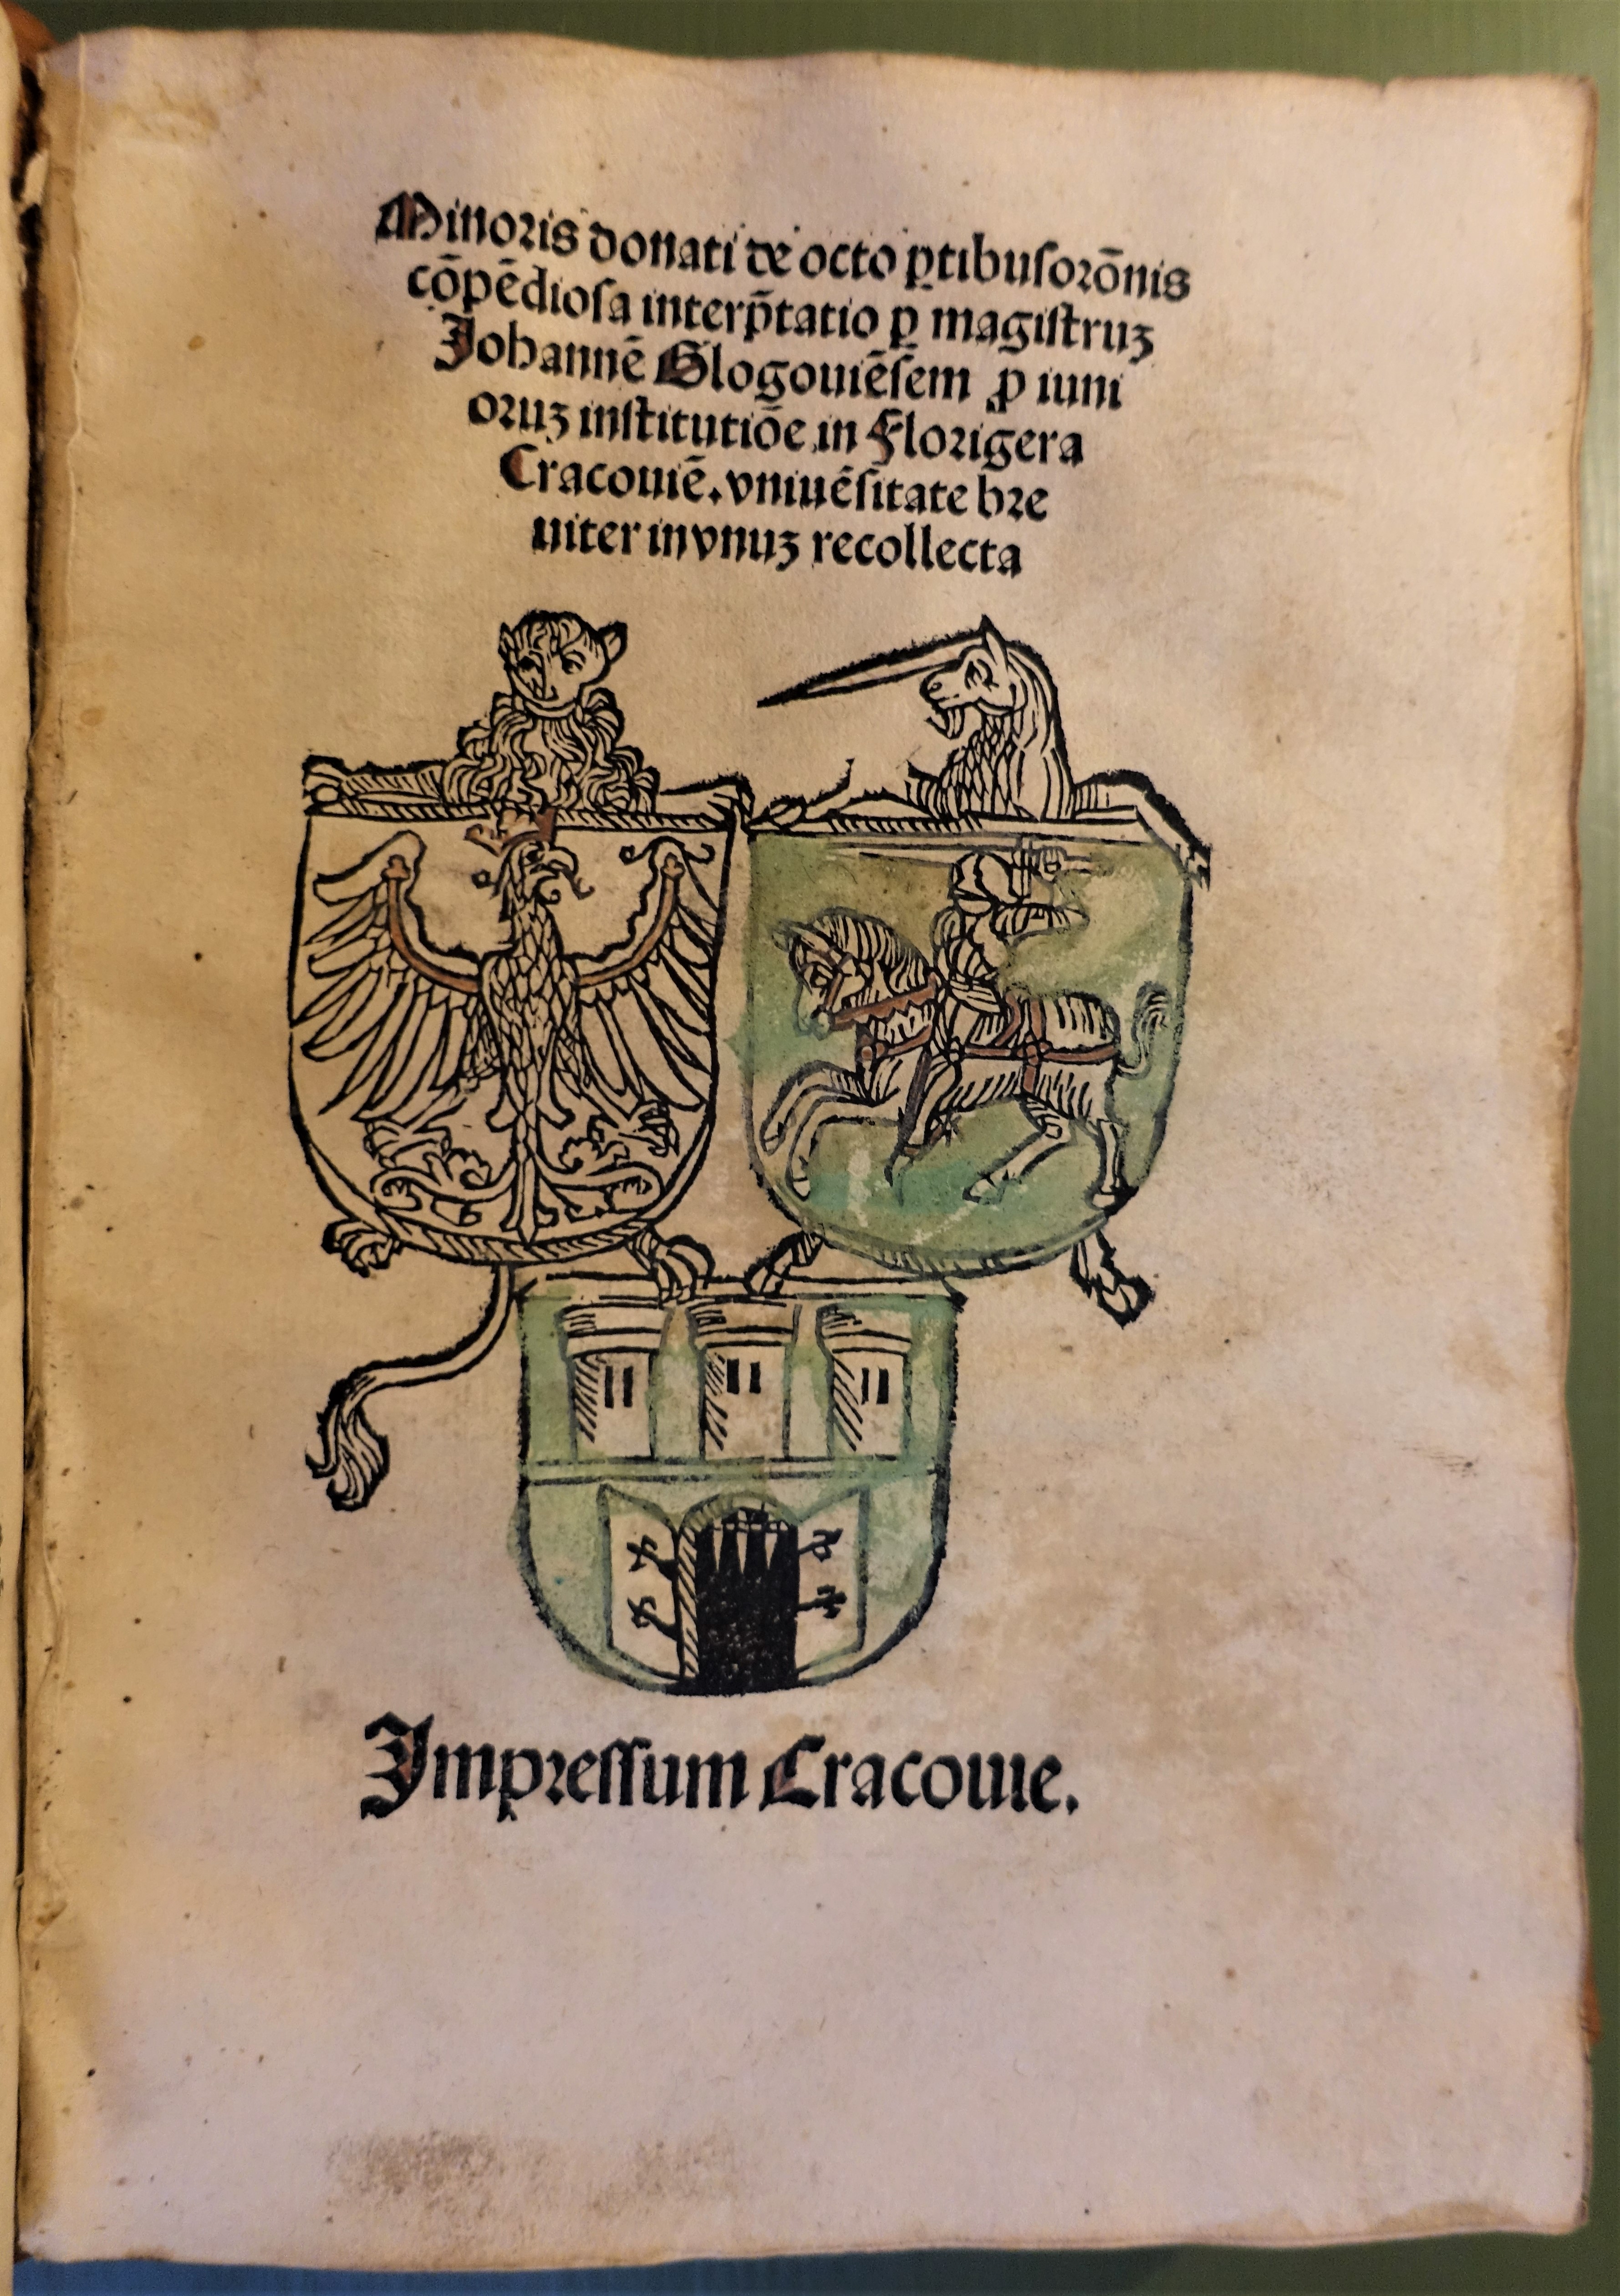 Minoris donati de octo ꝑtibuſorōnis
cōpēdioſa interp̄tatio ꝑ magiſtruꝫ
Johannē Glogouiēſem ꝓ iuni
oruꝫ inſtitutiōe in Florigera
Cracouiē. vniuēſitate bre
uiter in vnuꝫ recollecta
Impreſſum Cracouie.